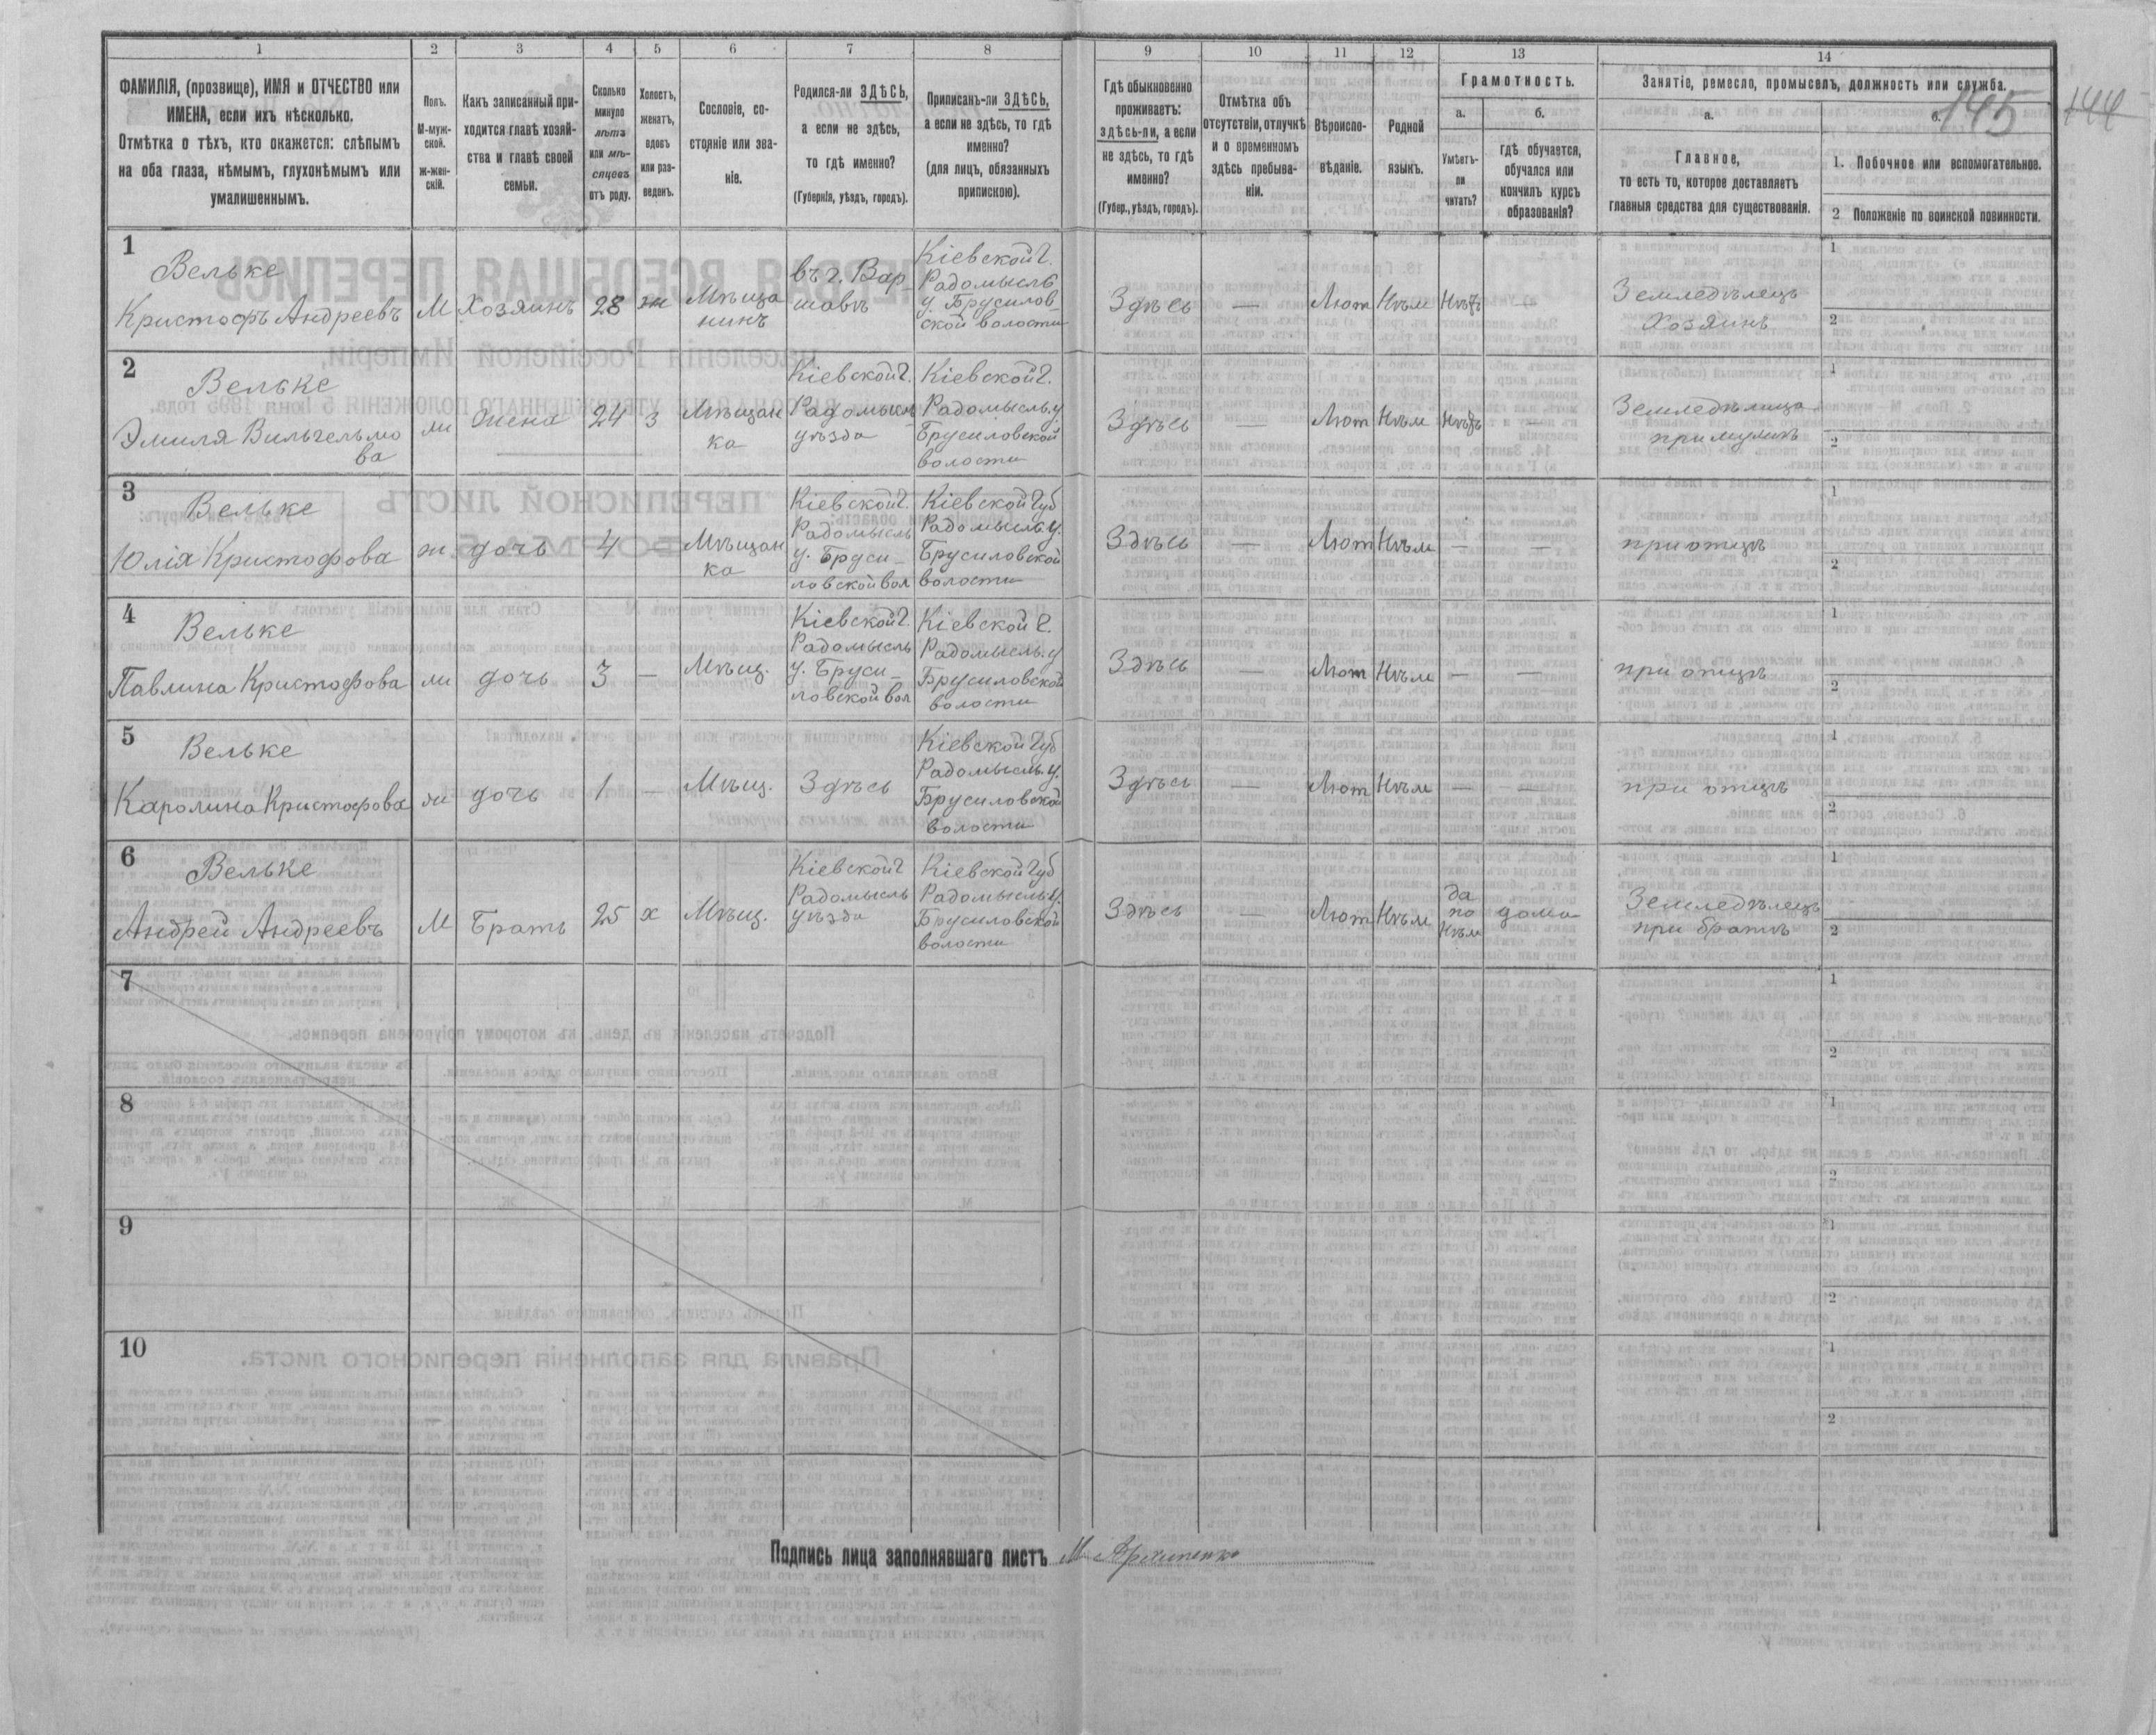 1 2 3 4 5 6 7 8 9 10 11 12 13 14
145 144
ФАМИЛІЯ, (прозвище), ИМЯ и ОТЧЕСТВО или
ИМЕНА, если ихъ нѣсколько.
Отмѣтка о тѣхъ, кто окажется: слѣпымъ
на оба глаза, нѣмымъ, глухонѣмымъ или
умалишеннымъ.
Полъ.
М-муж-
ской.
ж-жен-
скій.
Какъ записанный при-
ходится главѣ хозяй-
ства и главѣ своей
семьи.
Сколько
минуло
лѣтъ
или мѣ-
сяцевъ
отъ роду.
Холостъ,
женатъ,
вдовъ
или раз-
веденъ.
Сословіе, со-
стояніе или зва-
ніе.
Родился-ли ЗДѢСЬ,
а если не здѣсь,
то гдѣ именно?
(Губернія, уѣздъ, городъ).
Приписанъ-ли ЗДѢСЬ,
а если не здѣсь, то гдѣ
именно?
(для лицъ, обязанныхъ
припискою).
Гдѣ обыкновенно
проживаетъ:
здѣсь-ли, а если
не здѣсь, то гдѣ
именно?
(Губер., уѣздъ, городъ).
Отмѣтка объ
отсутствіи, отлучкѣ
и о временномъ
здѣсь пребыва-
ніи.
Вѣроиспо-
вѣданіе.
Родной
языкъ.
Грамотность.
а. б.
Умѣетъ-
ли
читать?
гдѣ обучается,
обучался или
кончилъ курсъ
образованія?
Занятіе, ремесло, промыселъ, должность или служба.
а. б.
Главное,
то есть то, которое доставляетъ
главныя средства для существованія.
1. Побочное или вспомогательное.
2 Положеніе по воинской повинности.
1
Вельке
Кристофъ Андреевъ
М
Хозяинъ
28
ж
Мѣща
нинъ
въ г. Вар-
шавѣ
Кіевской г.
Радомысль
у. Брусилов-
ской волости
Здѣсь
—
Лют
Нѣм
Нѣтъ
—
Земледѣлецъ
Хозяинъ
1
2
2
Вельке
Эмиля Вильгельмо
ва
ж
Жена
24
з
Мѣщан
ка
Кіевской г.
Радомысль
уѣзда
Кіевской г.
Радомысль. у
Брусиловской
волости
Здѣсь
—
Лют
Нѣм
Нѣтъ
—
Земледѣлица
при мужѣ
1
2
3
Вельке
Юлія Кристофова
ж
дочь
4
—
Мѣщан
ка
Кіевской г.
Радомысль
у. Бруси-
ловской вол
Кіевской Губ
Радомысль у.
Брусиловской
волости
Здѣсь
—
Лют
Нѣм
—
—
при отцѣ
1
2
4
Вельке
Павлина Кристофова
ж
дочь
3
—
Мѣщ.
Кіевской г.
Радомысль
у. Бруси-
ловской вол
Кіевской г.
Радомысль. у
Брусиловской
волости
Здѣсь
—
Лют
Нѣм
—
—
при отцѣ
1
2
5
Вельке
Каролина Кристофова
ж
дочь
1
—
Мѣщ.
Здѣсь
Кіевской Губ
Радомысль. у.
Брусиловской
волости
Здѣсь
—
Лют
Нѣм
—
—
при отцѣ
1
2
6
Вельке
Андрей Андреевъ
М
Братъ
25
х
Мѣщ.
Кіевской г
Радомысль
уѣзда
Кіевской Губ
Радомысль у.
Брусиловской
волости
Здѣсь
—
Лют
Нѣм
да
по
Нѣм
дома
Земледѣлецъ
при братѣ
1
2
7
1
2
8
1
2
9
1
2
10
1
2
Подпись лица заполнявшаго листъ М Архипенко